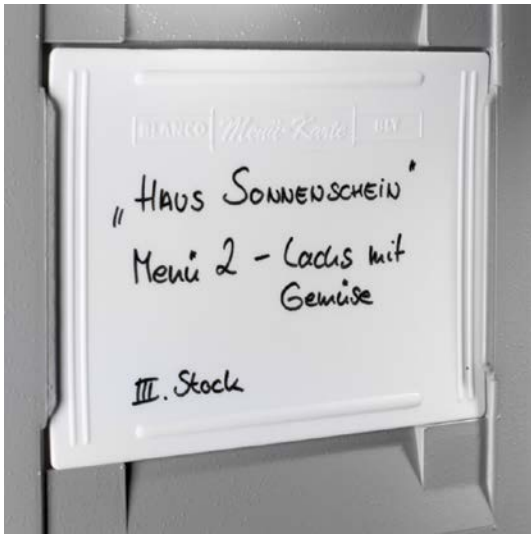 BLANCO Menü-Karte BLV
„Haus Sonnenschein“
Menü 2 - Lachs mit
Gemüse
III. Stock